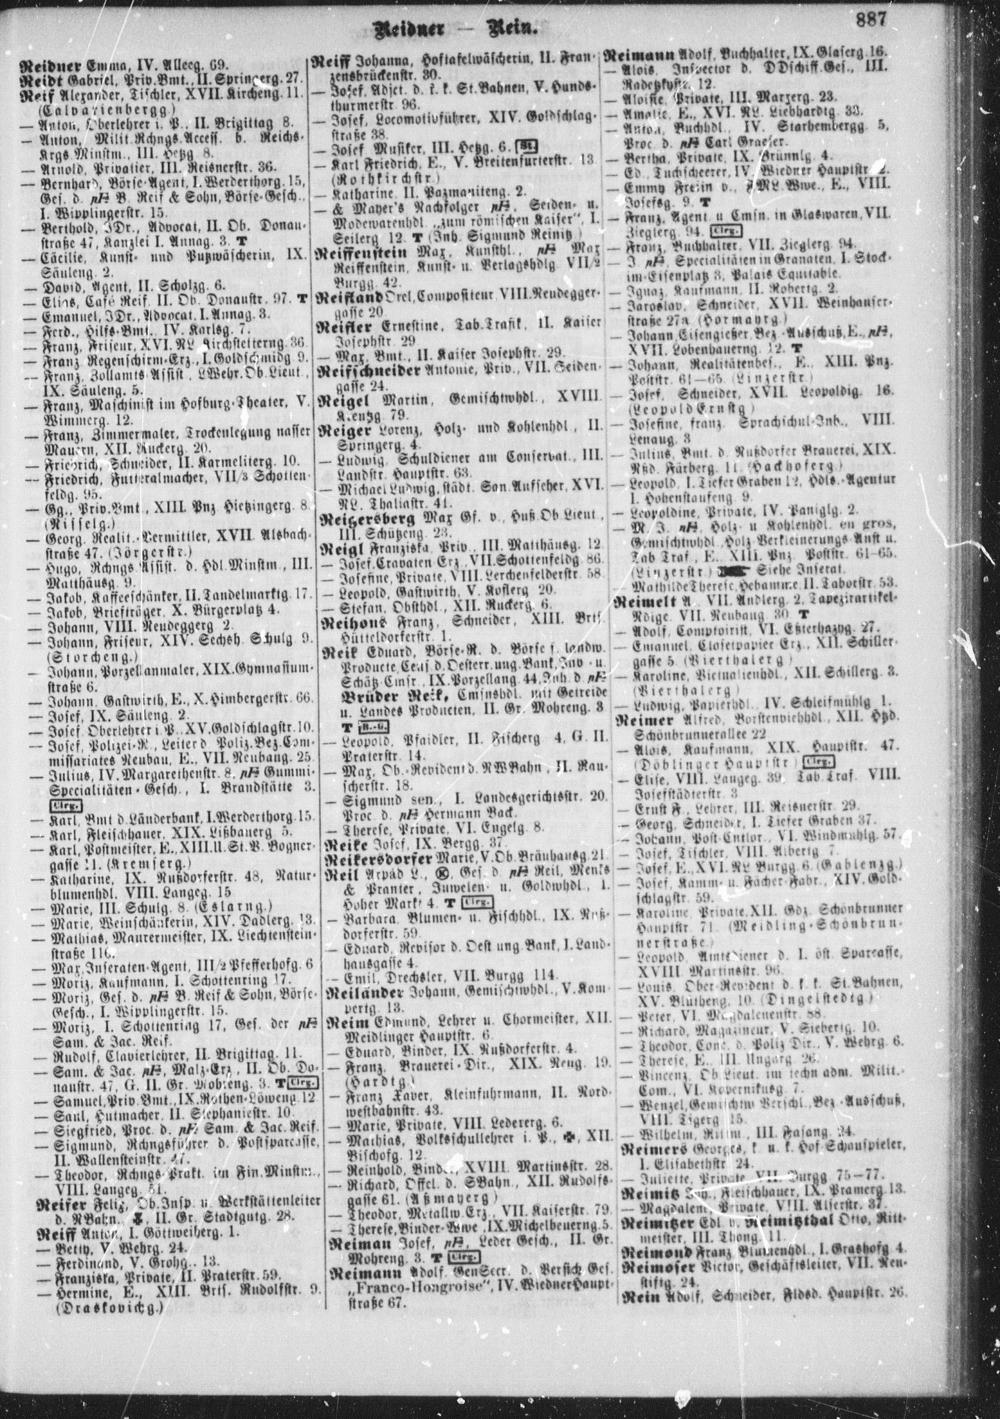 Reidner — Rein.
887
Reidner Emma, IV. Alleeg. 69.
Reidt Gabriel, Priv.Bmt., II. Springerg. 27.
Reif Alexander, Tischler, XVII. Kircheng. 11.
(Calvarienbergg.)
— Anton, Oberlehrer i. P., II. Brigittag 8.
— Anton, Milit. Rchngs. Access. b. Reichs-
Krgs. Minstm., III. Hetzg 8.
— Arnold, Privatier, III. Reisnerstr. 36.
— Bernhard, Börse-Agent, I. Werderthorg. 15,
Ges. d. B. Reif & Sohn, Börse-Gesch.,
I. Wipplingerstr. 15.
— Berthold, JDr., Advocat, II. Ob. Donau-
straße 47, Kanzlei I. Annag. 3. T
— Cäcilie, Kunst- und Putzwäscherin, IX.
Säuleng. 2.
— David, Agent, II. Scholzg. 6.
— Elias, Café Reif. II. Ob. Donaustr. 97. T
— Emanuel, JDr., Advocat, I. Annag. 3.
— Ferd., Hilfs-Bmt., IV. Karlsg. 7.
— Franz, Friseur, XVI. NL. Kirchstetterng. 36.
— Franz Regenschirm-Erz., I. Goldschmidg 9.
— Franz, Zollamts-Assist., LWehr.Ob.Lieut.,
IX. Säuleng. 5.
— Franz, Maschinist im Hofburg-Theater, V.
Wimmerg. 12.
— Franz, Zimmermaler, Trockenlegung nasser
Mauern, XII. Ruckerg. 20.
— Friedrich, Schneider, II. Karmeliterg. 10.
— Friedrich, Futteralmacher, VII/3 Schotten-
feldg. 95.
— Gg., Priv.Bmt., XIII. Pnz. Hietzingerg. 8.
(Nisselg.)
— Georg, Realit.-Vermittler, XVII. Alsbach-
straße 47. (Jörgerstr.)
— Hugo, Rchngs.Assist. d. Hdl.Minstm., III.
Matthäusg. 9.
— Jakob, Kaffeeschänker, II. Tandelmarktg. 17.
— Jakob, Briefträger, X. Bürgerplatz 4.
— Johann, VIII. Neudeggerg 2.
— Johann, Friseur, XIV. Sechsh. Schulg 9.
(Storcheng.)
— Johann, Porzellanmaler, XIX. Gymnasium-
straße 6.
— Johann, Gastwirth, E., X. Himbergerstr. 66.
— Josef, IX. Säuleng. 2.
— Josef Oberlehrer i. P., XV. Goldschlagstr. 10.
— Josef, Polizei-R., Leiter d. Poliz.Bez.Com-
missariates Neubau, E., VII. Neubaug. 25.
— Julius, IV. Margarethenstr. 8, Gummi-
Specialitäten-Gesch., I. Brandstätte 3.
Clrg.
— Karl, Bmt d.Länderbank, I.Werderthorg. 15.
— Karl, Fleischhauer, XIX. Lißbauerg 5.
— Karl, Postmeister, E., XIII.U.St.V. Bogner-
gasse 11. (Kremserg.)
— Katharine, IX. Nußdorferstr. 48, Natur-
blumenhdl. VIII. Langeg. 15
— Marie, III. Schulg. 8. (Eslarng.)
— Marie, Weinschänkerin, XIV. Dadlerg. 13.
— Mathias, Maurermeister, IX. Liechtenstein-
straße 116.
— Max, Inseraten-Agent, III/2 Pfefferhofg. 6
— Moriz, Kaufmann, I. Schottenring 17.
— Moriz, Ges. d. B. Reif & Sohn, Börse-
Gesch., I. Wipplingerstr. 15.
— Moriz, I. Schottenring 17, Ges. der
Sam. & Jac. Reif.
— Rudolf, Clavierlehrer, II. Brigittag. 11.
— Sam. & Jac., Malz-Erz., II. Ob. Do-
naustr. 47, G. II. Gr. Mohreng. 3. T Clrg.
— Samuel, Priv.Bmt., IX. Rothen-Löweng 12
— Saul, Hutmacher, II. Stephaniestr. 10.
— Siegfried, Proc. d. Sam. & Jac. Reif.
— Sigmund, Rchngsführer d. Postsparcasse,
II. Wallensteinstr.
— Theodor, Rchngs-Prakt. im Fin. Minstm.,
VIII. Langeg. 51.
Reifer Felix, Ob.Insp. u. Werkstättenleiter
d. NBahn, II. Gr. Stadtgutg. 28.
Reiff Anton, I. Göttweiherg. 1.
— Betty, V. Wehrg. 24.
— Ferdinand, V. Grohg. 13.
— Franziska, Private, II. Praterstr. 59.
— Hermine, E., XIII. Brts. Rudolfstr. 9.
(Draskovichg.)
Reiff Johanna, Hoftafelwäscherin, II. Fran-
zensbrückenstr. 30.
— Josef, Adjct. d. k. k. St.Bahnen, V. Hunds-
thurmerstr. 96.
— Josef, Locomotivführer, XIV. Goldschlag-
straße 38.
— Josef Musiker, III. Hetzg. 6.
— Karl Friedrich, E., V. Breitenfurterstr. 13
(Rothkirchstr.)
— Katharine, II. Pazmaniteng. 2.
— & Mayer's Nachfolger, Seiden- u.
Modewarenhdl. „zum römischen Kaiser“, I.
Seilerg 12. T (Inh. Sigmund Reinitz)
Reiffenstein Max, Kunsthl., Max
Reiffenstein, Kunst- u. Verlagshdlg VII/2
Burgg. 42.
Reifland Orel, Compositeur, VIII. Neudegger-
gasse 20.
Reifler Ernestine, Tab.Trafik, II. Kaiser
Josephstr. 29
— Max, Bmt., II. Kaiser Josephstr. 29.
Reifschneider Antonie, Priv., VII. Seiden-
gasse 24.
Reigel Martin, Gemischtwhdl., XVIII.
Kreuzg. 79.
Reiger Lorenz, Holz- und Kohlenhdl., II.
Springerg. 4.
— Ludwig, Schuldiener am Conservat., III.
Landstr. Hauptstr. 63.
— Michael Ludwig, städt. San.Aufseher, XVI.
NL. Thaliastr. 41.
Reigersberg Max Gf. v., Huß.Ob.Lieut.,
III. Schützeng. 23.
Reigl Franziska, Priv., III. Matthäusg. 12.
— Josef, Cravaten Erz., VII. Schottenfeldg. 86.
— Josefine, Private, VIII. Lerchenfelderstr. 58
— Leopold, Gastwirth, V. Koflerg 20.
— Stefan, Obsthdl., XII. Ruckerg. 6.
Reihons Franz, Schneider, XIII. Brts.
Hütteldorferstr. 1.
Reik Eduard, Börse-R. d. Börse f. landw.
Producte, Cens. d. Oesterr. ung. Bank, Inv. u.
Schätz.Cmsr., IX. Porzellang. 44, Inh. d.
Brüder Reik, Cmsnshdl. mit Getreide
u. Landes Producten, II. Gr. Mohreng. 3
T B.-G.
— Leopold, Pfaidler, II. Fischerg 4, G. II.
Praterstr. 14.
— Max, Ob.-Revident d. NWBahn, II. Rau-
scherstr. 18.
— Sigmund sen., I. Landesgerichtsstr. 20.
Proc. d. Hermann Back.
— Therese, Private, VI. Engelg. 8.
Reike Josef, IX. Bergg. 37.
Reikersdorfer Marie, V. Ob. Bräuhausg. 21
Reil Arpád L., Ges. d. Reil, Menks
& Pranter, Juwelen- u. Goldwhdl., I.
Hoher Markt 4. T Clrg.
— Barbara, Blumen- u. Fischhdl., IX. Nuß-
dorferstr. 59.
— Eduard, Revisor d. Oest ung. Bank, I. Land-
hausgasse 4.
— Emil, Drechsler, VII. Burgg 114.
Reiländer Johann, Gemischtwhdl., V. Kom-
pertg. 13.
Reim Edmund, Lehrer u. Chormeister, XII.
Meidlinger Hauptstr. 6.
— Eduard, Binder, IX. Nußdorferstr. 4.
— Franz, Brauerei-Dir., XIX. Neug. 19.
(Hardtg.)
— Franz Xaver, Kleinfuhrmann, II. Nord-
westbahnstr. 43.
— Marie, Private, VIII. Ledererg. 6.
— Mathias, Volksschullehrer i. P., XII.
Bischofg. 12.
— Reinhold, Binder, XVIII. Martinsstr. 28.
— Richard, Offel. d. SBahn, XII. Rudolfs-
gasse 61. (Aßmayerg)
— Theodor, Metallw.Erz., VII. Kaiserstr. 79.
— Therese, Binder-Wwe., IX. Michelbeuerng. 5.
Reiman Josef, Leder Gesch., II. Gr.
Mohreng. 3. T Clrg.
Reimann Adolf, GenSecr. d. Versich Ges.
„Franco-Hongroise“, IV. Wiedner Haupt-
straße 67.
Reimann Adolf, Buchhalter, IX. Glaserg. 16.
— Alois, Inspector d. DDschiff.Ges., III.
Radetzkystr. 12.
— Aloisie, Private, III. Marxerg. 23.
— Amalie, E., XVI. NL. Liebhardtg. 33.
— Anton, Buchhdl., IV. Starhembergg. 5,
Proc. d. Carl Graeser.
— Bertha, Private, IX. Grünnlg. 4.
— Ed., Tuchscheerer, IV. Wiedner Hauptstr 2.
— Emmy Freiin v., FML.Wwe., E., VIII.
Josefsg. 9. T
— Franz, Agent u Cmsn. in Glaswaren, VII.
Zieglerg. 94. Clrg.
— Franz, Buchhalter, VII. Zieglerg. 94.
— J., Specialitäten in Granaten, I. Stock-
im-Eisenplatz 3, Palais Equitable.
— Ignaz, Kaufmann, II. Robertg. 2.
— Jaroslav, Schneider, XVII. Weinhauser-
straße 27a. (Hormayrg.)
— Johann, Eisengießer, Bez.-Ausschuß, E.,
XVII. Lobenhauerng. 12. T
— Johann, Realitätenbes., E., XIII. Pnz.
Poststr. 61—65. (Linzerstr.)
— Josef, Schneider, XVII. Leopoldig. 16.
(Leopold Ernstg)
— Josefine, franz. Sprachschul-Inh., VIII.
Lenaug. 3
— Julius, Bmt. d. Nußdorfer Brauerei, XIX.
Nßd. Färberg. 11. (Hackhoferg.)
— Leopold, I. Tiefer Graben 12, Hdls.-Agentur
I. Hohenstaufeng. 9.
— Leopoldine, Private, IV. Paniglg. 2.
— M. J., Holz- u Kohlenhdl. en gros,
Gemischtwhdl. Holz Verkleinerungs-Anst u.
Tab Traf., E., XIII. Pnz. Poststr. 61—65.
(Linzerstr.) Siehe Inserat.
— Mathilde Therese, Hebamme, II. Taborstr. 53.
Reimelt A. VII. Andlerg. 2, Tapezirartikel-
Ndlge. VII. Neubaug 30 T
— Adolf, Comptoirist, VI. Eßterhazyg. 27.
— Emanuel, Closetpapier Erz., XII. Schiller-
gasse 5. (Vierthalerg)
— Karoline, Victualienhdl., XII. Schillerg. 3.
(Vierthalerg)
— Ludwig, Papierhdl., IV. Schleifmühlg 1.
Reimer Alfred, Borstenviehhdl., XII. Htzd.
Schönbrunnerallee 22
— Alois, Kaufmann, XIX. Hauptstr. 47.
(Döblinger Hauptstr.) Clrg.
— Elise, VIII. Langeg. 39, Tab.Traf. VIII.
Josefstädterstr. 3
— Ernst F., Lehrer, III. Reisnerstr. 29.
— Georg, Schneider, I. Tiefer Graben 37.
— Johann, Post-Cntlor., VI. Windmühlg. 57.
— Josef, Tischler, VIII. Albertg 7.
— Josef, E., XVI. NL. Burgg 6. (Gablenzg.)
— Josef, Kamm- u. Fächer-Fabr., XIV. Gold-
schlagstr. 59.
— Karoline, Private, XII. Gdz. Schönbrunner
Hauptstr. 71. (Meidling-Schönbrun-
nerstraße.)
— Leopold, Amtsdiener d. I. öst. Sparcasse,
XVIII. Martinsstr. 96.
— Louis, Ober-Revident d. k. k. St.Bahnen,
XV. Blütheng. 10. (Dingelstedtg.)
— Peter, VI. Magdalenenstr. 88.
— Richard, Magazineur, V. Siebertg. 10.
— Theodor, Conc. d. Poliz Dir., V. Wehrg. 6.
— Therese, E., III. Ungarg. 26.
— Vincenz, Ob.Lieut. im techn. adm. Milit.-
Com., VI. Kopernikusg. 7.
— Wenzel, Gemischtw Verschl., Bez.-Ausschuß,
VIII. Tigerg 15.
— Wilhelm, Rittm., III. Fasang. 24.
Reimers Georges, k. u. k. Hof-Schauspieler,
I. Elisabethstr. 24.
— Juliette, Private, VII. Burgg 75—77.
Reimitz Joh., Fleischhauer, IX. Pramerg. 13.
— Magdalene, Private, VIII. Alserstr. 37.
Reimitzer Edl. v. Reimitzthal Otto, Ritt-
meister, III. Thong. 11.
Reimond Franz, Blumenhdl., I. Grashofg 4.
Reimoser Victor, Geschäftsleiter, VII. Neu-
stiftg. 24.
Rein Adolf, Schneider, Fldsd. Hauptstr. 26.